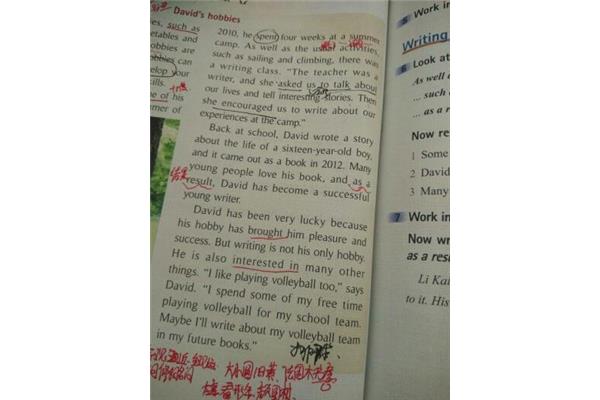 David's hobbies
such as
etables and
obbies are
bbies can
elop your
ills.
e of his
mer of
2010, he spent four weeks at a summer
camp. As well as the usual activities,
such as sailing and climbing, there was
a writing class. "The teacher was a
writer, and she asked us to talk about
our lives and tell interesting stories. Then
she encouraged us to write about our
experiences at the camp."
Back at school, David wrote a story
about the life of a sixteen-year-old boy,
and it came out as a book in 2012. Many
young people love his book, and as a
结果
result, David has become a successful
young writer.
David has been very lucky because
his hobby has brought him pleasure and
success. But writing is not his only hobby.
He is also interested in many other
things. "I like playing volleyball too," says
David. "I spend some of my free time
playing volleyball for my school team.
Maybe I'll write about my volleyball team
in my future books."
5 Work in
Writing
6 Look at
As well
... such
... as a r
Now re
1 Some
2 David
3 Many
7 Work in
Now wr
as a res
Li Kai
to it. His